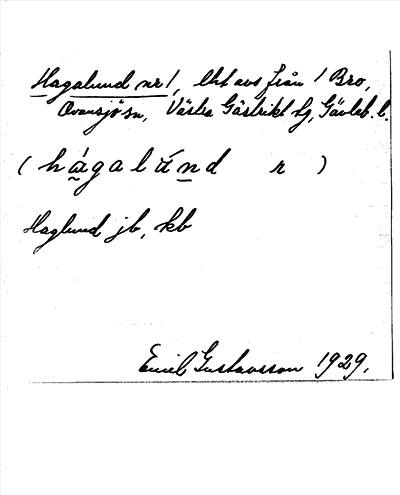 Hagalund nr 1, lht avs från 1 Bro,
Ovansjö sn, Västra Gästrikl. tg, Gävleb. l.
(hágalúnd r)
Haglund jb, kb
Emil Gustavsson 1929.